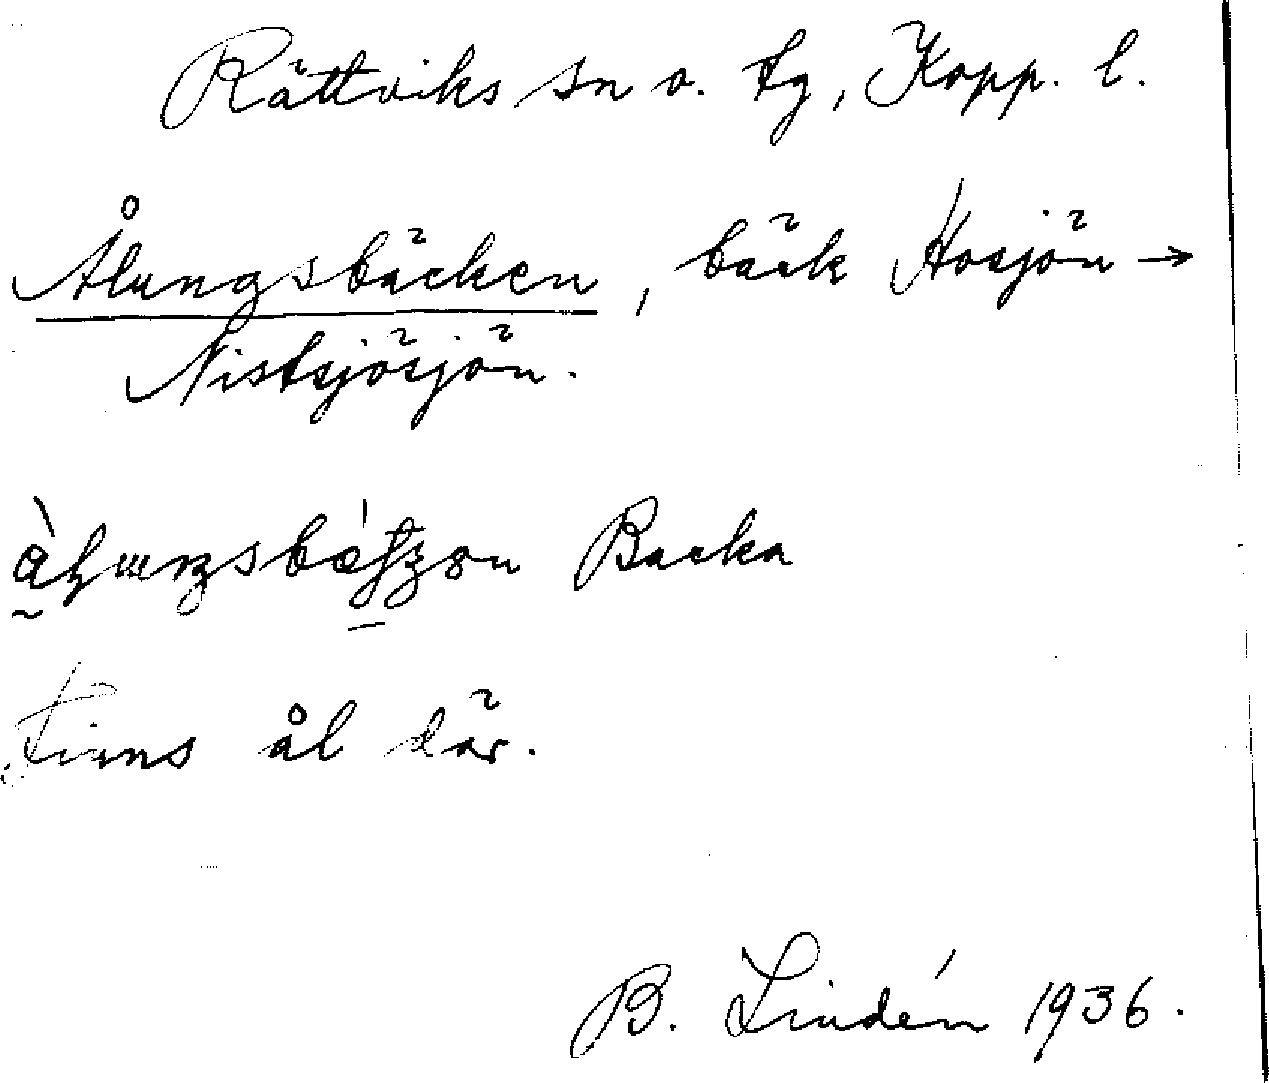 Rättviks sn o. tg, Kopp. l.
Ålungsbäcken, bäck Hosjön →
Nistsjösjön.
Backa
Finns ål där.
B. Lindén 1936.